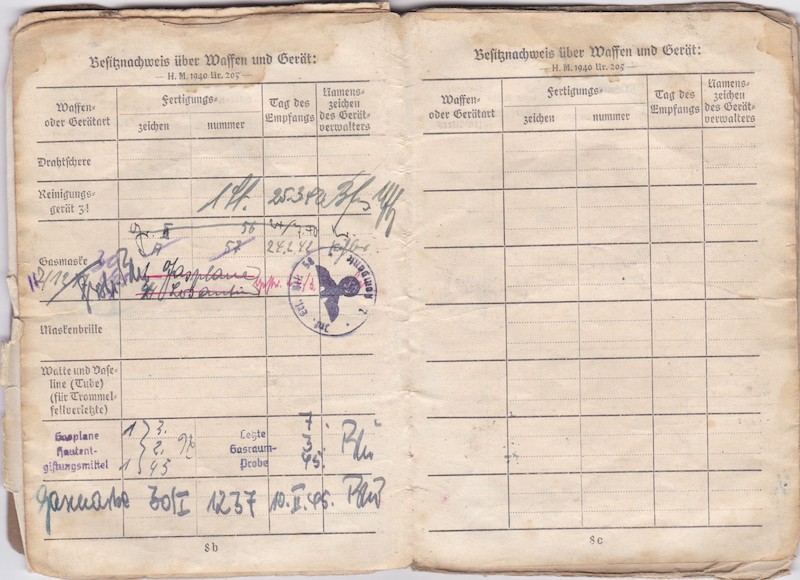 Besitznachweis über Waffen und Gerät:
— H. M. 1940 Nr. 205 —
Waffen-
oder Gerätart
Fertigungs-
zeichen
nummer
Tag des
Empfangs
Namens-
zeichen
des Gerät-
verwalters
Drahtschere
Reinigungs-
gerät 34
1 St.
25.3.42
Gasmaske
Gr. II
56
57
24.2.42
Gasplane
Losantin
Maskenbrille
Watte und Vase-
line (Tube)
(für Trommel-
fellverletzte)
Gasplane
Hautent-
giftungsmittel
1 } 3.
} 2.
1 } 45
Letzte
Gasraum-
Probe
7.
3.
45.
Gasmaske 30/I 1237 10.II.45.
8b
Besitznachweis über Waffen und Gerät:
— H. M. 1940 Nr. 205 —
Waffen-
oder Gerätart
Fertigungs-
zeichen
nummer
Tag des
Empfangs
Namens-
zeichen
des Gerät-
verwalters
8c